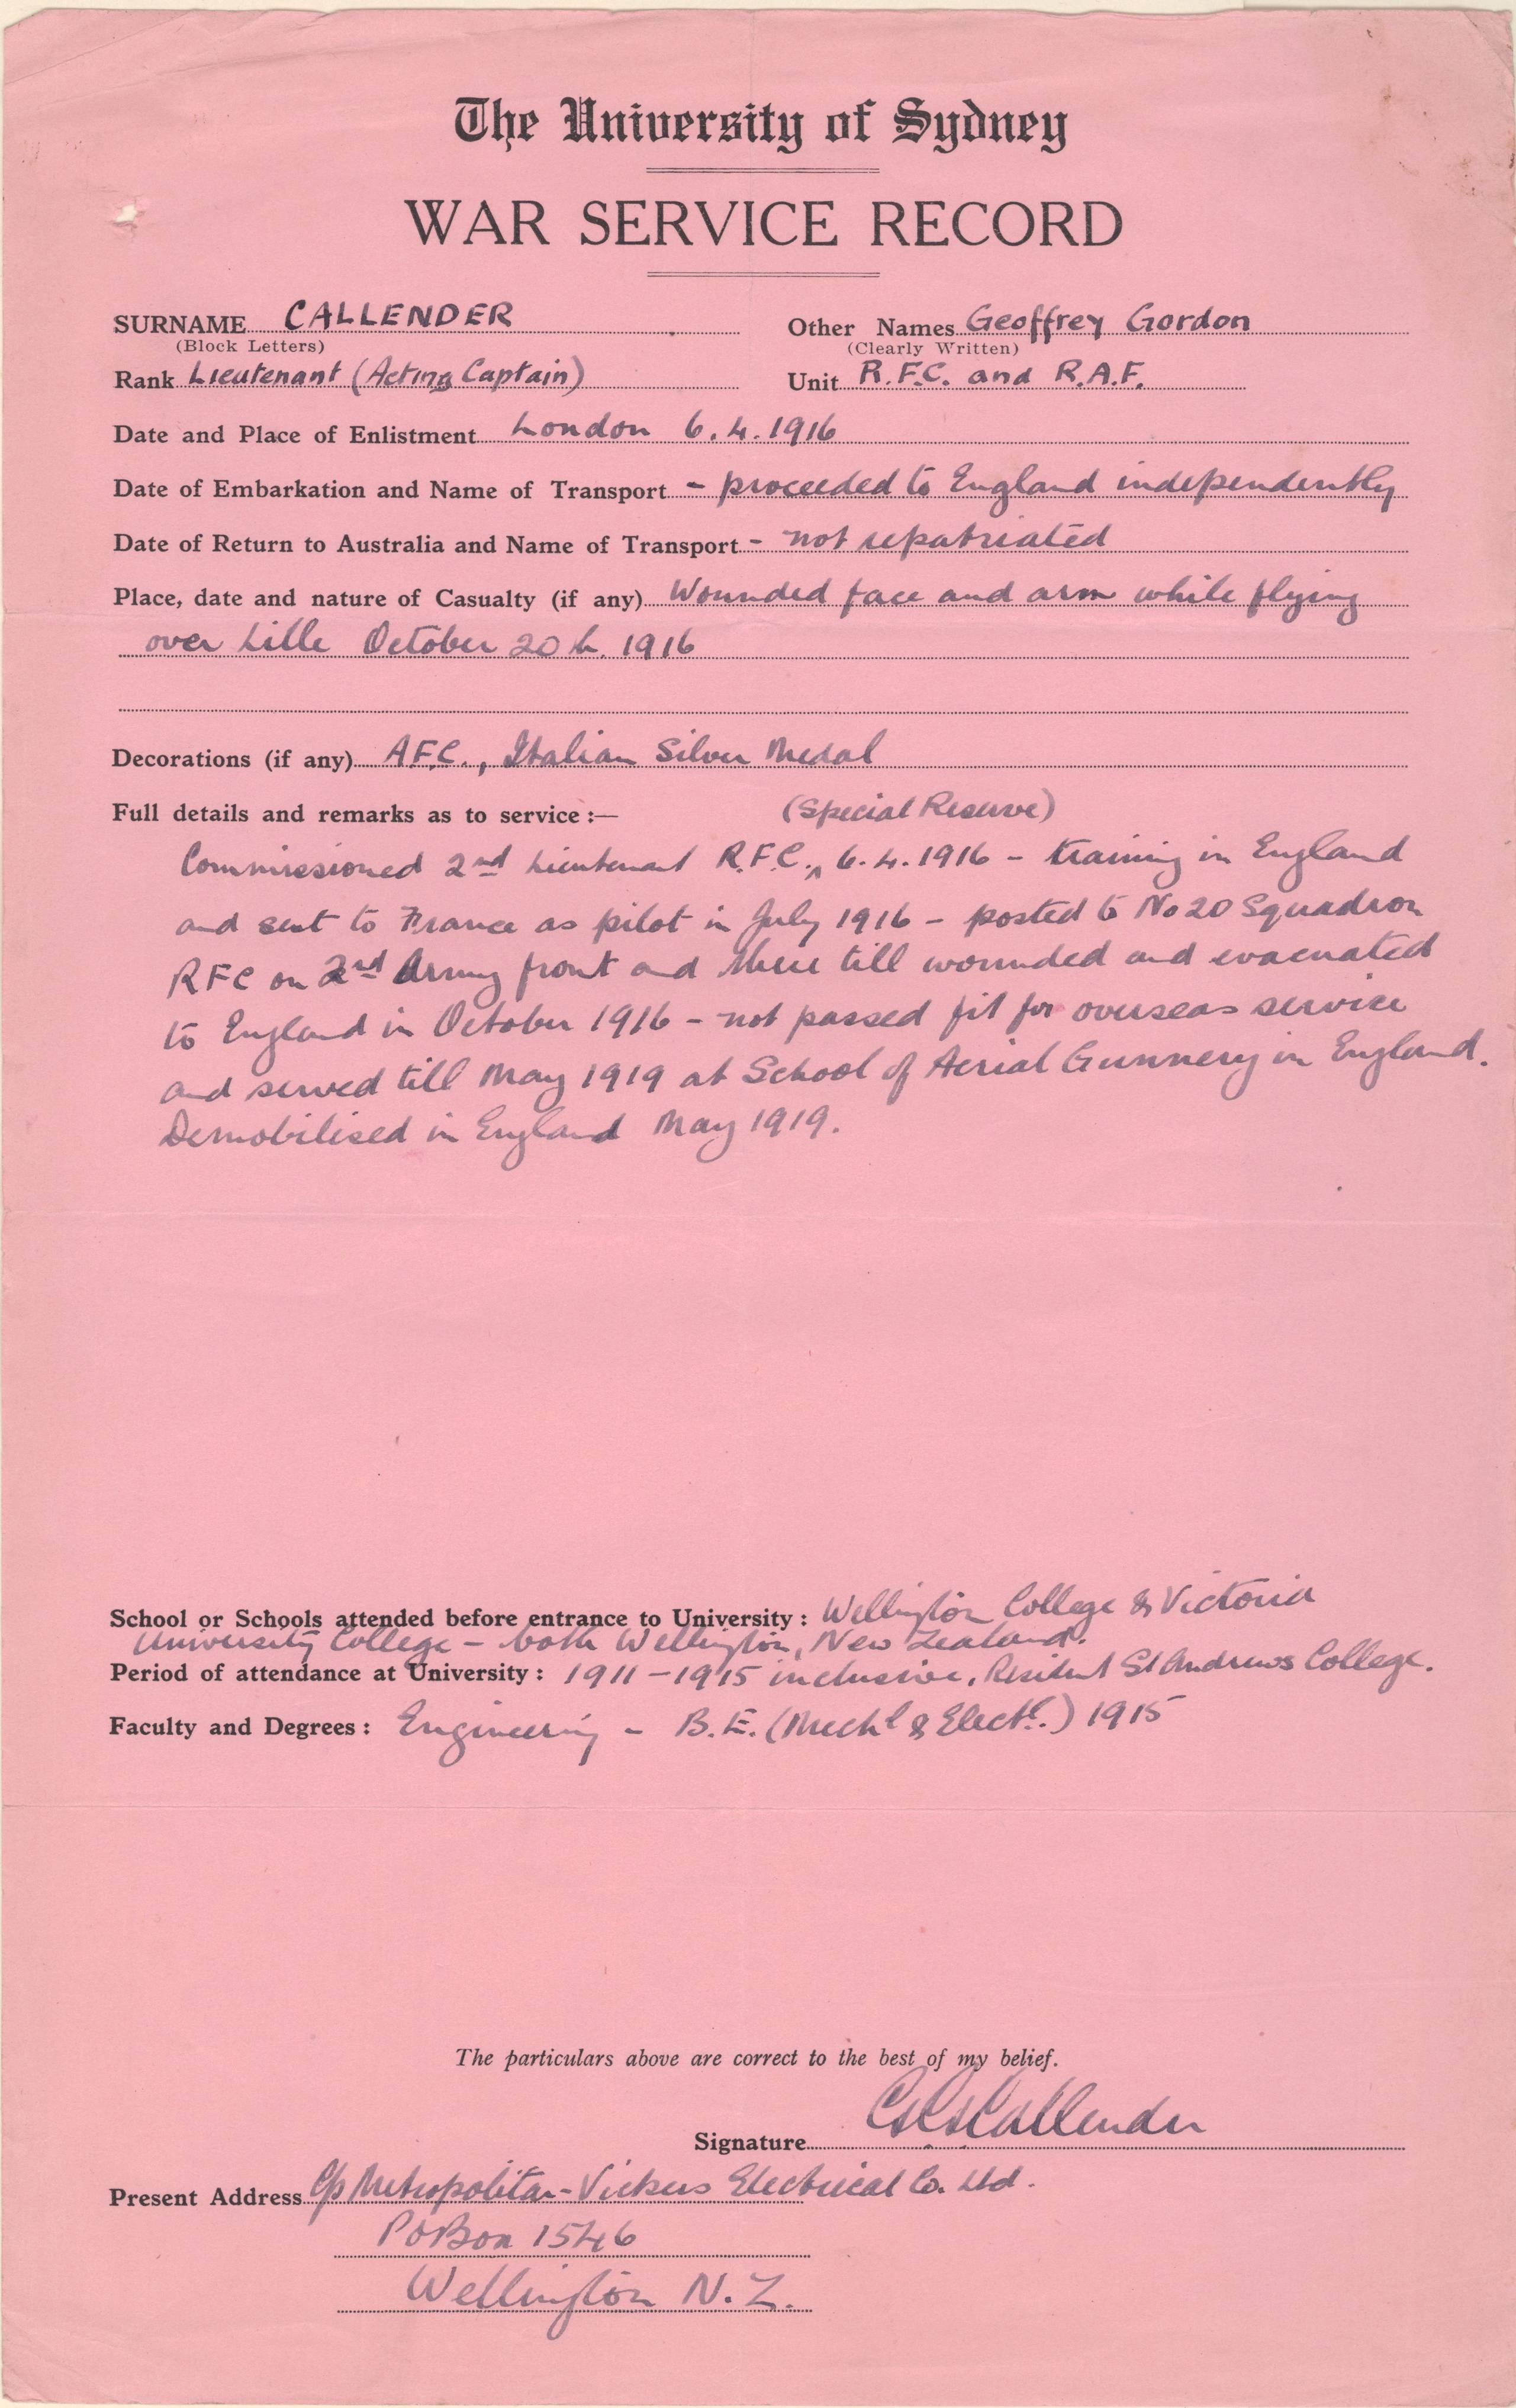 The University of Sydney
WAR SERVICE RECORD
SURNAME CALLENDER Other Names Geoffrey Gordon
(Block Letters) (Clearly Written)
Rank Lieutenant (Acting Captain) Unit R.F.C. and R.A.F.
Date and Place of Enlistment London 6.4.1916
Date of Embarkation and Name of Transport - proceeded to England independently
Date of Return to Australia and Name of Transport - not repatriated
Place, date and nature of Casualty (if any) Wounded face and arm while flying
over Lille October 20th. 1916
Decorations (if any) A.F.C., Italian Silver Medal
Full details and remarks as to service :— (Special Reserve)
Commissioned 2nd Lieutenant R.F.C.^ 6.4.1916 - training in England
and sent to France as pilot in July 1916 - posted to No 20 Squadron
RFC on 2nd Army front and there till wounded and evacuated
to England in October 1916 - not passed fit for overseas service
and served till May 1919 at School of Aerial Gunnery in England.
Demobilised in England May 1919.
School or Schools attended before entrance to University : Wellington College & Victoria
University College - both Wellington, New Zealand.
Period of attendance at University : 1911-1915 inclusive. Resident St Andrews College.
Faculty and Degrees : Engineering - B.E. (Mechl & Electl.) 1915
The particulars above are correct to the best of my belief.
Signature GGCallender
Present Address c/o Metropolitan-Vickers Electrical Co. Ltd.
PO Box 1546
Wellington N.Z.